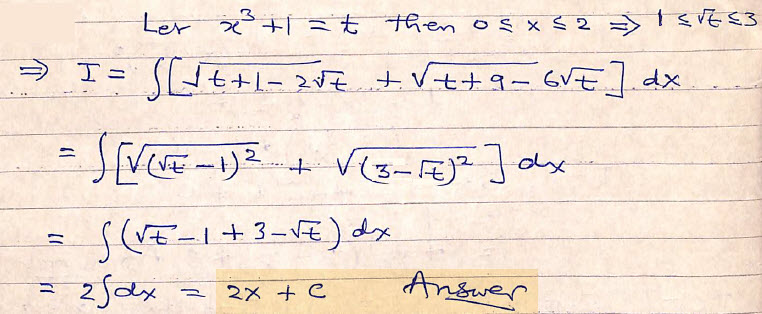 Let x³ + 1 = t then 0 ≤ x ≤ 2 ⇒ 1 ≤ √t ≤ 3
⇒ I = ∫[√(t+1-2√t) + √(t+9-6√t)] dx
= ∫[√((√t-1)²) + √((3-√t)²)] dx
= ∫(√t-1+3-√t) dx
= 2∫dx = 2x + c Answer